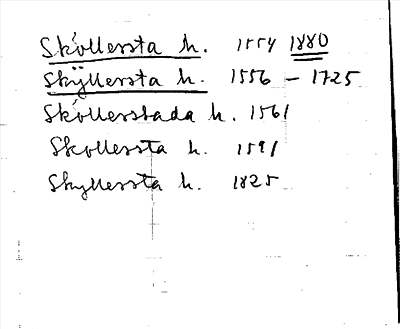 Sköllersta h. 1554 1880
Skÿllersta h. 1556 - 1725
Sköllerstada h. 1561
Skollersta h. 1591
Skyllersta h. 1825